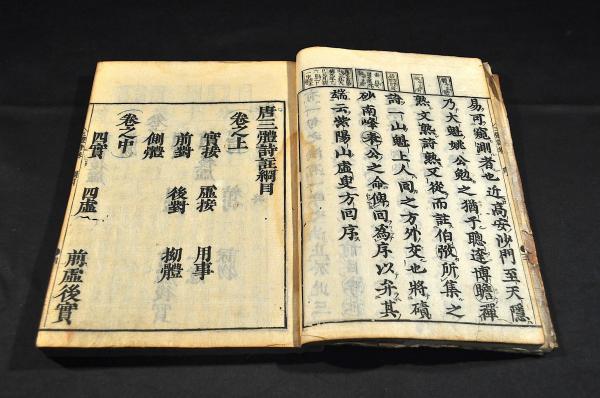 易可窺測者也近髙安沙門至天隱
乃大魁姚公勉之猶子聰達博贍禪
熟文熟詩熟又從而註伯弜所集之
詩一山魁上人回之方外交也將磧
砂南峰袁公之命俾回為序以弁其
端云紫陽山虛叟方回序
唐三體詩註綱目
卷之上
實接 虛接 用事
前對 後對 拗體
側體
卷之中
四實 四虛 前虛後實